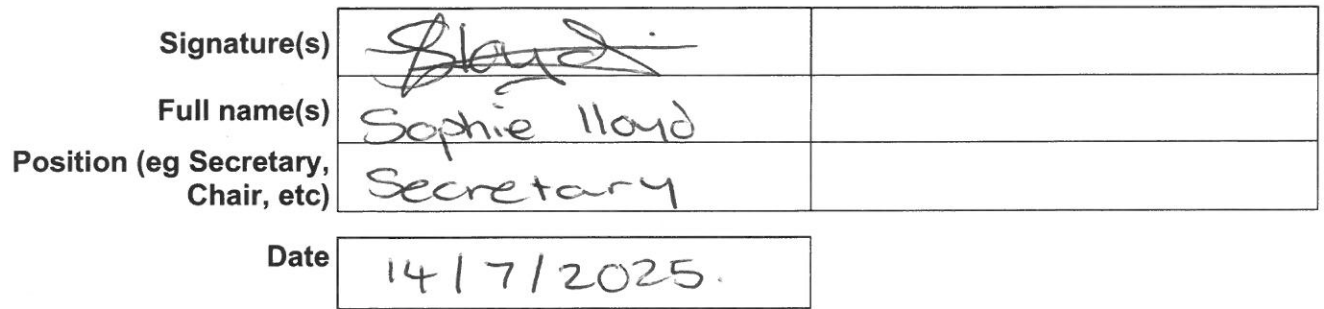 Signature(s) SLloyd
Full name(s) Sophie lloyd
Position (eg Secretary,
Chair, etc) Secretary
Date 14/7/2025.